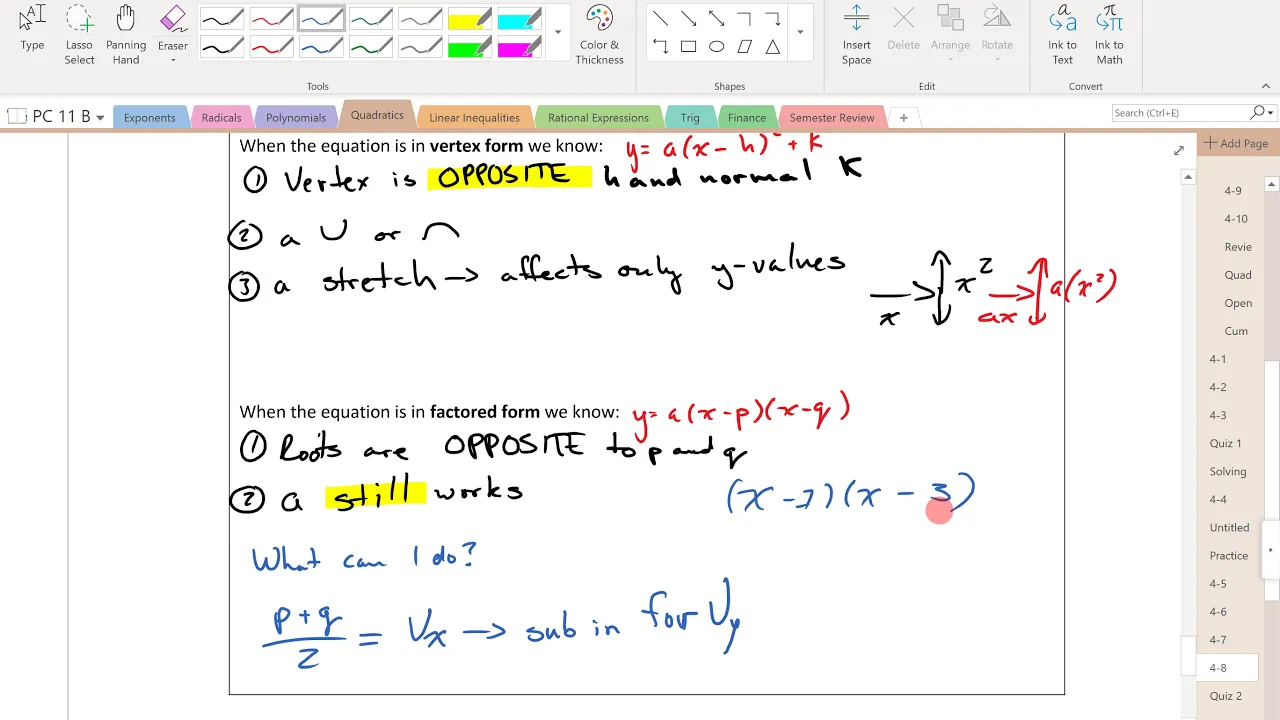 Type
Lasso Select
Panning Hand
Eraser
Color & Thickness
Insert Space
Delete
Arrange
Rotate
Ink to Text
Ink to Math
Tools
Shapes
Edit
Convert
PC 11 B
Exponents
Radicals
Polynomials
Quadratics
Linear Inequalities
Rational Expressions
Trig
Finance
Semester Review
+
Search (Ctrl+E)
When the equation is in vertex form we know: y = a(x - h)² + k
① Vertex is OPPOSITE h and normal K
② a ∪ or ∩
③ a stretch → affects only y-values
x → x²
ax → a(x²)
When the equation is in factored form we know: y = a(x-p)(x-q)
① Roots are OPPOSITE to p and q
② a still works
(x - 7)(x - 3)
What can I do?
p+q / 2 = Vx → sub in for Vy
Add Page
4-9
4-10
Revie
Quad
Open
Cum
4-1
4-2
4-3
Quiz 1
Solving
4-4
Untitled
Practice
4-5
4-6
4-7
4-8
Quiz 2